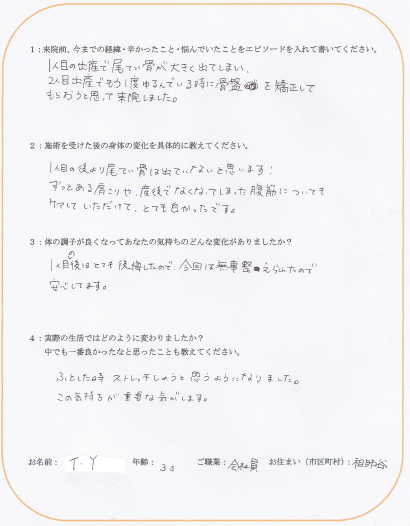 1：来院前、今までの経緯・辛かったこと・悩んでいたことをエピソードを入れて書いてください。
1人目の出産で尾てい骨が大きく出てしまい、
2人目出産でもう1度ゆるんでいる時に骨盤を矯正して
もらおうと思って来院しました。
2：施術を受けた後の身体の変化を具体的に教えてください。
1人目の後より尾てい骨は出ていないと思います！
ずっとある肩こりや、産後でなくなってしまった腹筋についても
ケアしていただけて、とても良かったです。
3：体の調子が良くなってあなたの気持ちのどんな変化がありましたか？
1人目の後はとても後悔したので、今回は無事整えられたので
安心してます。
4：実際の生活ではどのように変わりましたか？
中でも一番良かったなと思ったことも教えてください。
ふとした時ストレッチしようと思うようになりました。
この気持ちが重要な気がします。
お名前： T.Y 年齢： 33 ご職業： 会社員 お住まい（市区町村）：